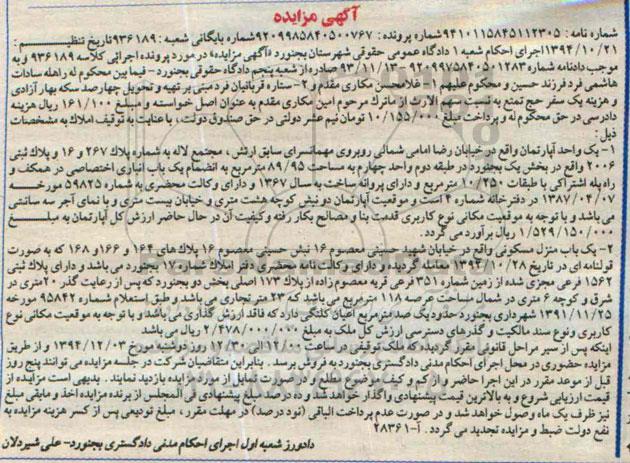 آگهی مزایده
شماره نامه : 9410115845112305 شماره پرونده : 9209985840500767 شماره بایگانی شعبه : 936189 تاریخ تنظیم :
1394/10/21 اجرای احکام شعبه 1 دادگاه عمومی حقوقی شهرستان بجنورد «آگهی مزایده» در مورد پرونده اجرائی کلاسه 936189 و به
موجب دادنامه شماره 9209975840501283 - 93/11/13 صادره از شعبه پنجم دادگاه حقوقی بجنورد - فیما بین محکوم له راهله سادات
هاشمی فرد فرزند حسین و محکوم علیهم 1 - غلامحسن مکاری مقدم و 2 - ستاره قربانیان فرد مبنی بر تهیه و تحویل چهارصد سکه بهار آزادی
و هزینه یک سفر حج تمتع به نسبت سهم الارث از ماترک مرحوم امین مکاری مقدم به عنوان اصل خواسته و مبلغ 161/100 ریال هزینه
دادرسی در حق محکوم له و پرداخت مبلغ 10/155/000 تومان نیم عشر دولتی در حق صندوق دولت، با عنایت به توقیف املاک به مشخصات
ذیل:
1- یک واحد آپارتمان واقع در خیابان رضا امامی شمالی روبروی مهمانسرای سابق ارتش ، مجتمع لاله به شماره پلاک 267 و 16 و پلاک ثبتی
2006 واقع در بخش یک بجنورد در طبقه دوم واحد چهارم به مساحت 89/95 مترمربع به انضمام یک باب انباری اختصاصی در همکف و
راه پله اشتراکی با طبقات 10/250 مترمربع و دارای پروانه ساخت به سال 1367 و دارای وکالت محضری به شماره 59825 مورخه
1387/04/07 در دفترخانه شماره 4 است و موقعیت آپارتمان دو نبش کوچه هشت متری و خیابان بیست متری و با نمای آجر سه سانتی
می باشد و با توجه به موقعیت مکانی نوع کاربری قدمت بنا و مصالح بکار رفته وکیفیت آن در حال حاضر ارزش کل آپارتمان به مبلغ
1/529/150/000 ریال برآورد می گردد .
2- یک باب منزل مسکونی واقع در خیابان شهید حسینی معصوم 16 نبش حسینی معصوم 16 پلاک های 164 و 166 و 168 که به صورت
قولنامه ای در تاریخ 1393/10/28 معامله گردیده و دارای وکالت نامه محضری دفتر املاک شماره 17 بجنورد می باشد و دارای پلاک ثبتی
1562 فرعی مجزی شده از زمین شماره 351 فرعی قریه معصوم زاده از پلاک 173 اصلی بخش دو بجنورد که پس از رعایت گذر 20 متری در
شرق و کوچه 6 متری در شمال مساحت عرصه 118 مترمربع می باشد که 23 متر تجاری می باشد و طبق استعلام شماره 95842 مورخه
1391/11/25 شهرداری بجنورد حدود یک صد مترمربع اعیان کلنگی دارد که فاقد ارزش گذاری می باشد و با توجه به موقعیت مکانی نوع
کاربری ونوع سند مالکیت و گذرهای دسترسی ارزش کل ملک به مبلغ 2/478/000/000 ریال می باشد
اینکه پس از سیر مراحل قانونی مقرر گردیده که ملک توقیفی در ساعت 12/00 الی 12/30 روز دوشنبه مورخ 1394/12/03 و از طریق
مزایده حضوری در محل اجرای احکام مدنی دادگستری بجنورد به فروش برسد . بنابراین متقاضیان شرکت در جلسه مزایده می توانند پنج روز
قبل از موعد مقرر در این اجرا حاضر و از کم و کیف موضوع مطلع و در صورت تمایل از مورد مزایده بازدید نمایند . بدیهی است مزایده از
قیمت ارزیابی شروع و به بالاترین قیمت پیشنهادی واگذار خواهد شد و ده درصد مبلغ پیشنهادی فی المجلس از برنده مزایده اخذ و مابقی مبلغ
نیز ظرف یک ماه وصول خواهد شد و در صورت عدم پرداخت الباقی (نود درصد) در مهلت مقرر ، مبلغ تودیعی پس از کسر هزینه مزایده به
نفع دولت ضبط و مزایده تجدید می گردد . آ-28361
دادورز شعبه اول اجرای احکام مدنی دادگستری بجنورد - علی شیردلان